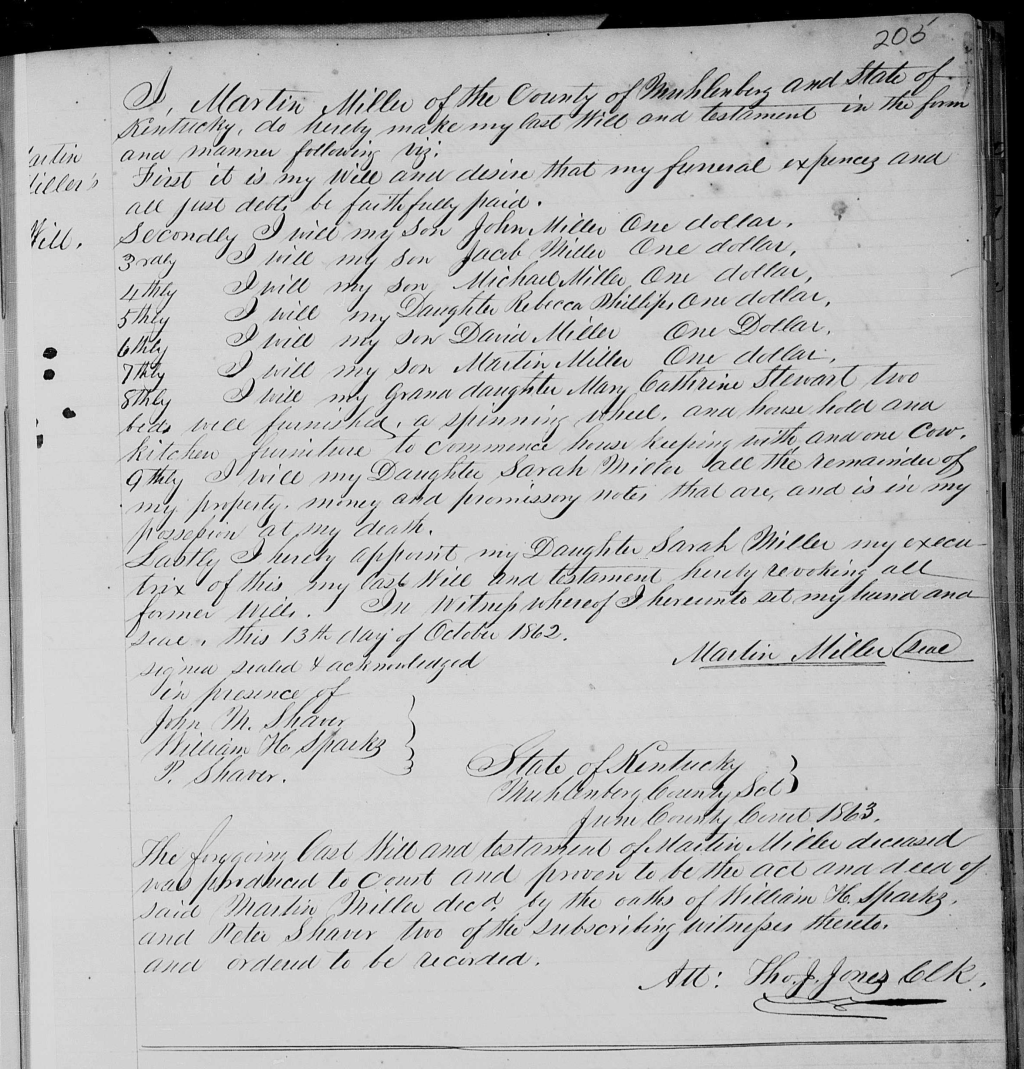 205
I, Martin Miller of the County of Muhlenberg and State of
Kentucky, do hereby make my last Will and testament in the form
and manner following viz;
artin
iller's
Will.
First it is my Will and desire that my funeral expences and
all just debts be faithfully paid.
Secondly I will my son John Miller One dollar.
3rdly I will my son Jacob Miller One dollar.
4thly I will my son Michael Miller One dollar.
5thly I will my Daughter Rebecca Phillips, One dollar.
6thly I will my son David Miller One Dollar.
7thly I will my son Martin Miller One dollar.
8thly I will my Grand daughter Mary Cathrine Stewart two
beds well furnished, a spinning wheel, and house hold and
kitchen furniture to commence house keeping with and one Cow.
9thly I will my Daughter Sarah Miller all the remainder of
my property, money and promissory notes that are, and is in my
possesion at my death.
Lastly I hereby appoint my Daughter Sarah Miller my execu-
trix of this my last Will and testament hereby revoking all
former Wills. In Witness whereof I hereunto set my hand and
seal, this 13th day of October 1862.
Martin Miller Seal
signed sealed & acknowledged
in presence of
John M. Shaver
William H. Sparks
P. Shaver.
State of Kentucky
Muhlenberg County Sct
June County Court 1863.
The foregoing Last Will and testament of Martin Miller deceased
was produced to Court and proven to be the act and deed of
said Martin Miller decd. by the oaths of William H. Sparks,
and Peter Shaver two of the subscribing witnesses thereto.
and ordered to be recorded.
Att: Tho. J. Jones Clk.